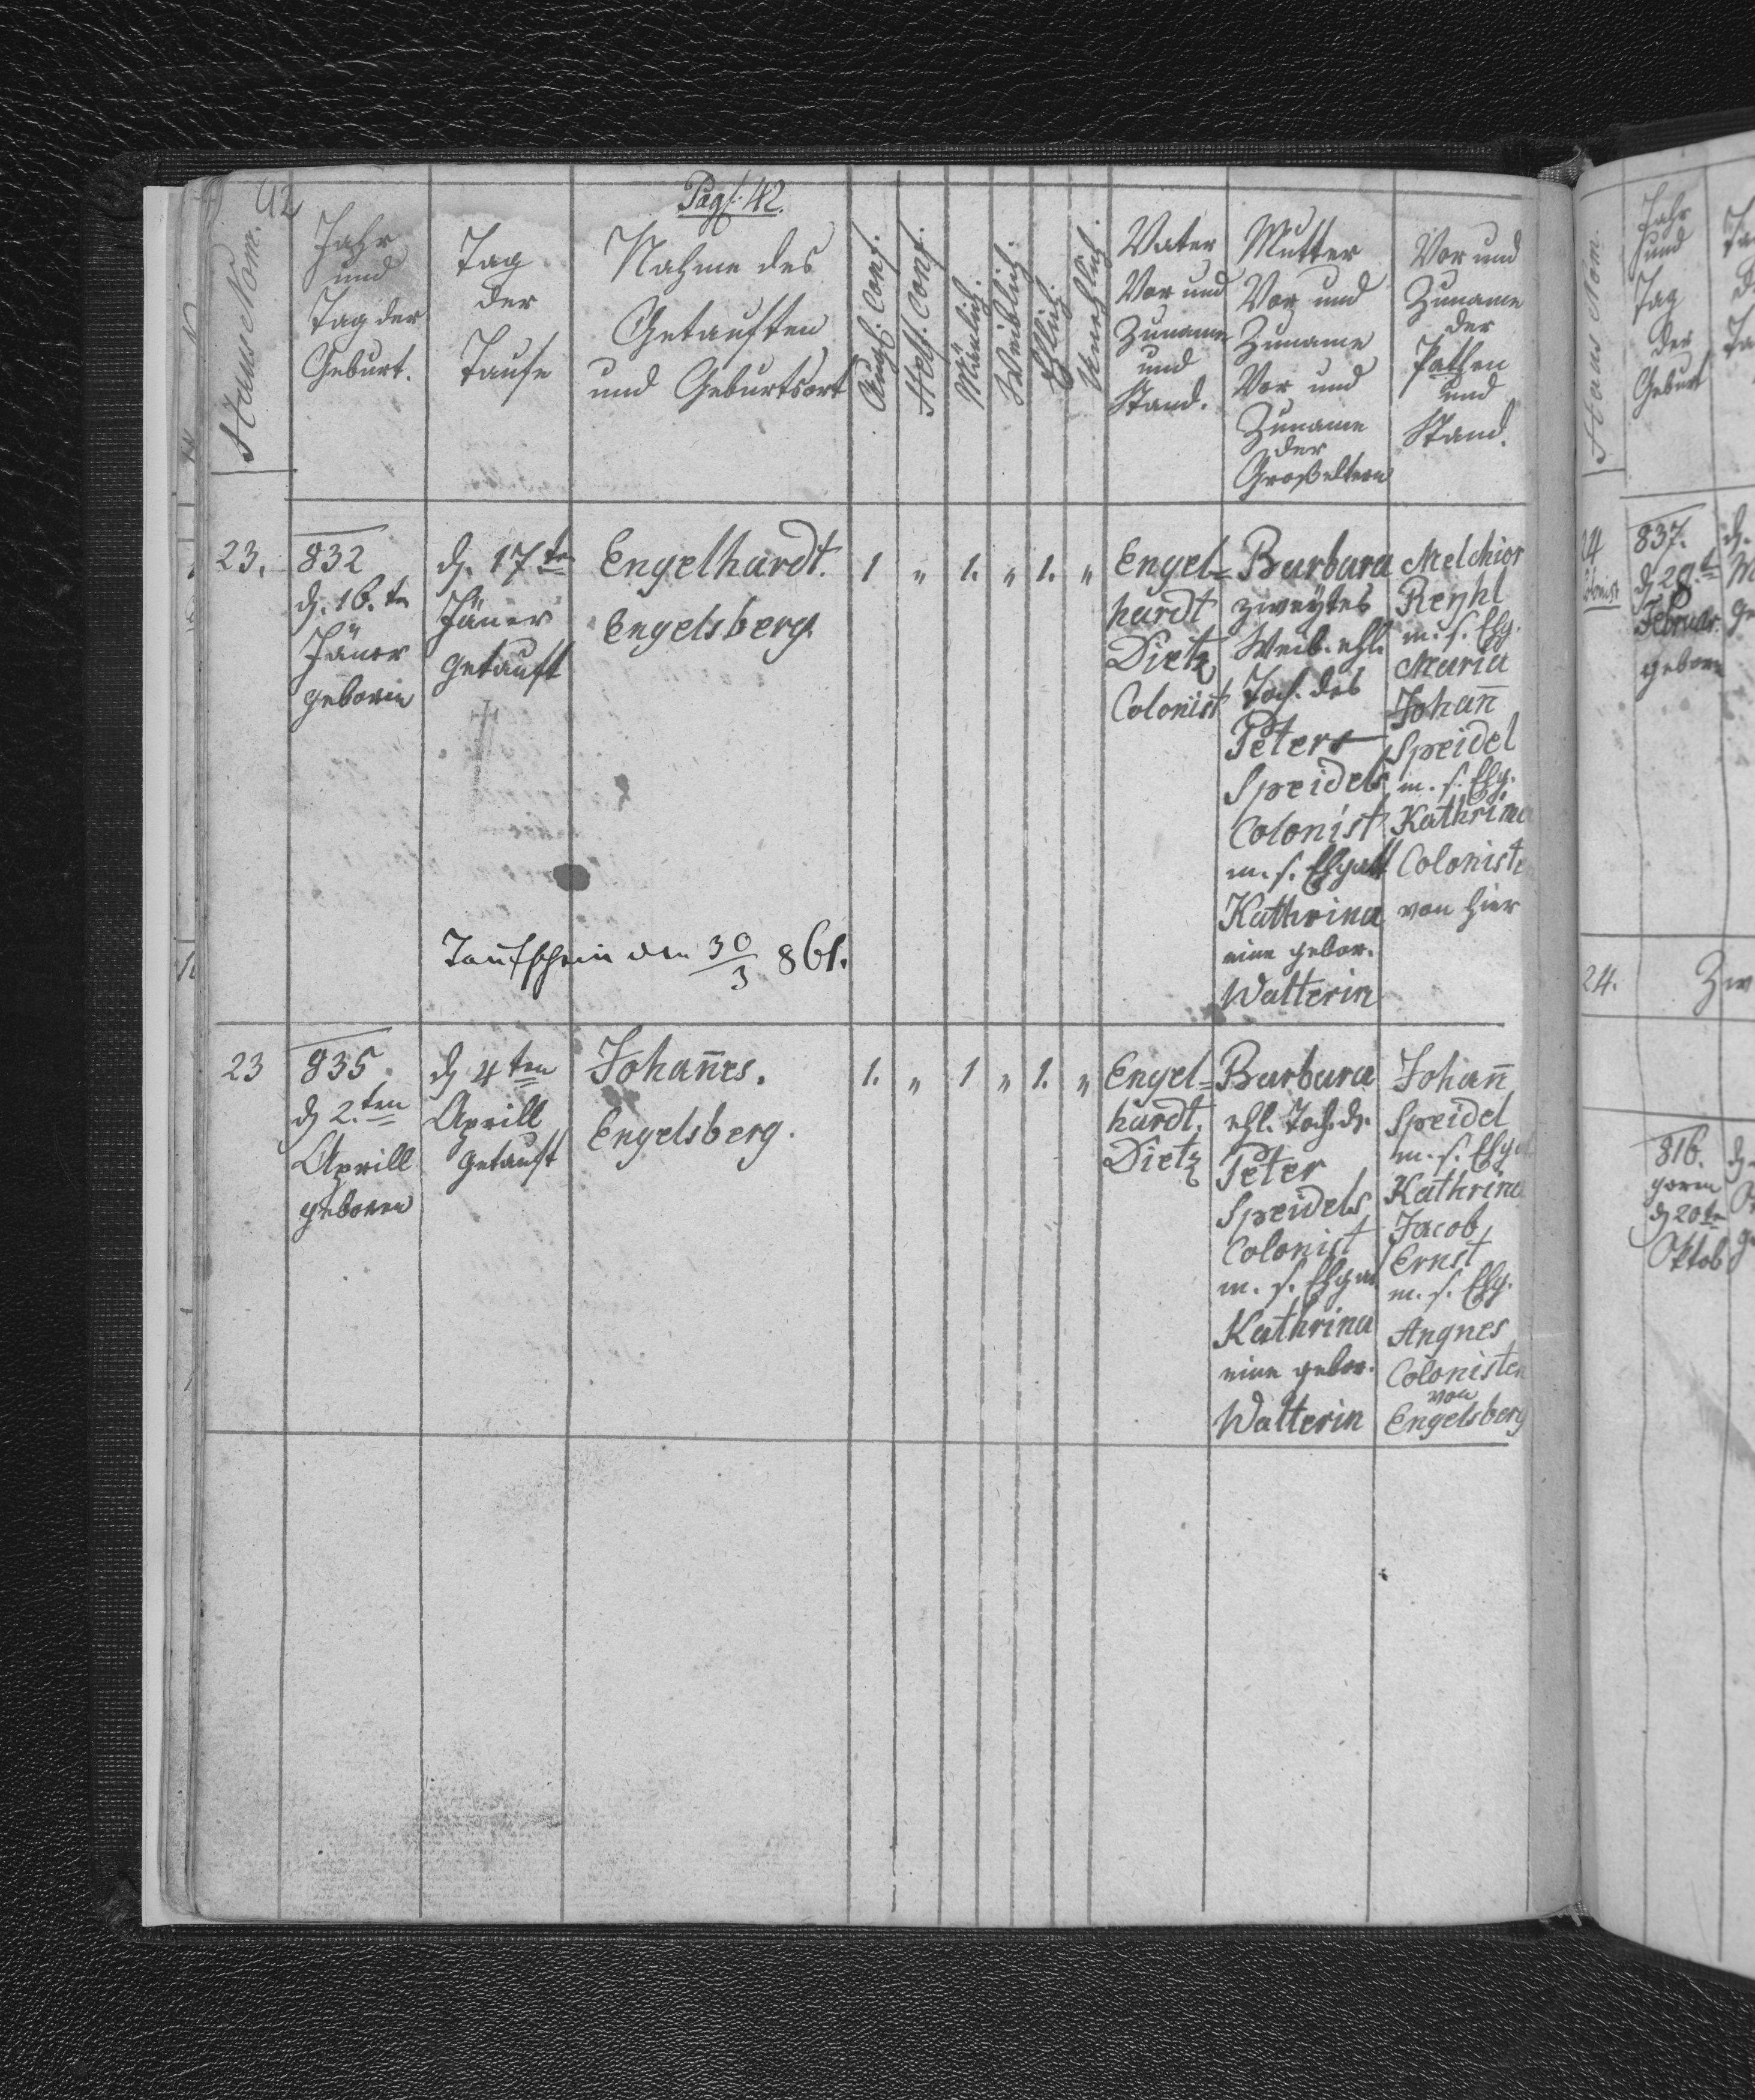 42
Pag. 42.
Haus Nom.
Jahr
und
Tag der
Geburt.
Tag
der
Taufe
Nahme des
Getauften
und Geburtsort
Augs. Conf.
Helf. Conf.
Mänlich.
Weiblich.
Ehlich.
Unehlich.
Vater
Vor und
Zuname
und
Stand.
Mutter
Vor und
Zuname
Vor und
Zuname
der
Großeltern
Vor und
Zuname
der
Pathen
und
Stand.
23.
832
d. 16.ten
Jäner
geboren
d. 17ten
Jäner
getauft
Engelhardt.
Engelsberg
1 „ 1. „ 1. „
Engel=
hardt
Dietz
Colonist
Barbara
zweytes
Weib. ehl.
Toch. des
Peter
Speidels
Colonist
m. s. Ehgatt
Kathrina
eine gebor.
Walterin
Melchior
Reyhl
m. s. Ehg.
Maria
Johan̄
Speidel
m. s. Ehg.
Kathrina
Colonisten
von hier
Taufschein den 30/3 861.
23
835.
d 2.ten
Aprill
geboren
d 4ten
Aprill
getauft
Johan̄es.
Engelsberg.
1. „ 1 „ 1. „
Engel=
hardt.
Dietz
Barbara
ehl. Toch. d.
Peter
Speidels
Colonist
m. s. Ehgat
Kathrina
eine gebor.
Walterin
Johan̄
Speidel
m. s. Ehgat
Kathrina
Jacob
Ernst
m. s. Ehg.
Angnes
Colonisten
von
Engelsberg
Haus Nom.
Jahr
und
Tag
der
Geburt
24
837.
d 28.ten
Februar.
geboren
24.
Zw
816.
d 20ten
Oktob